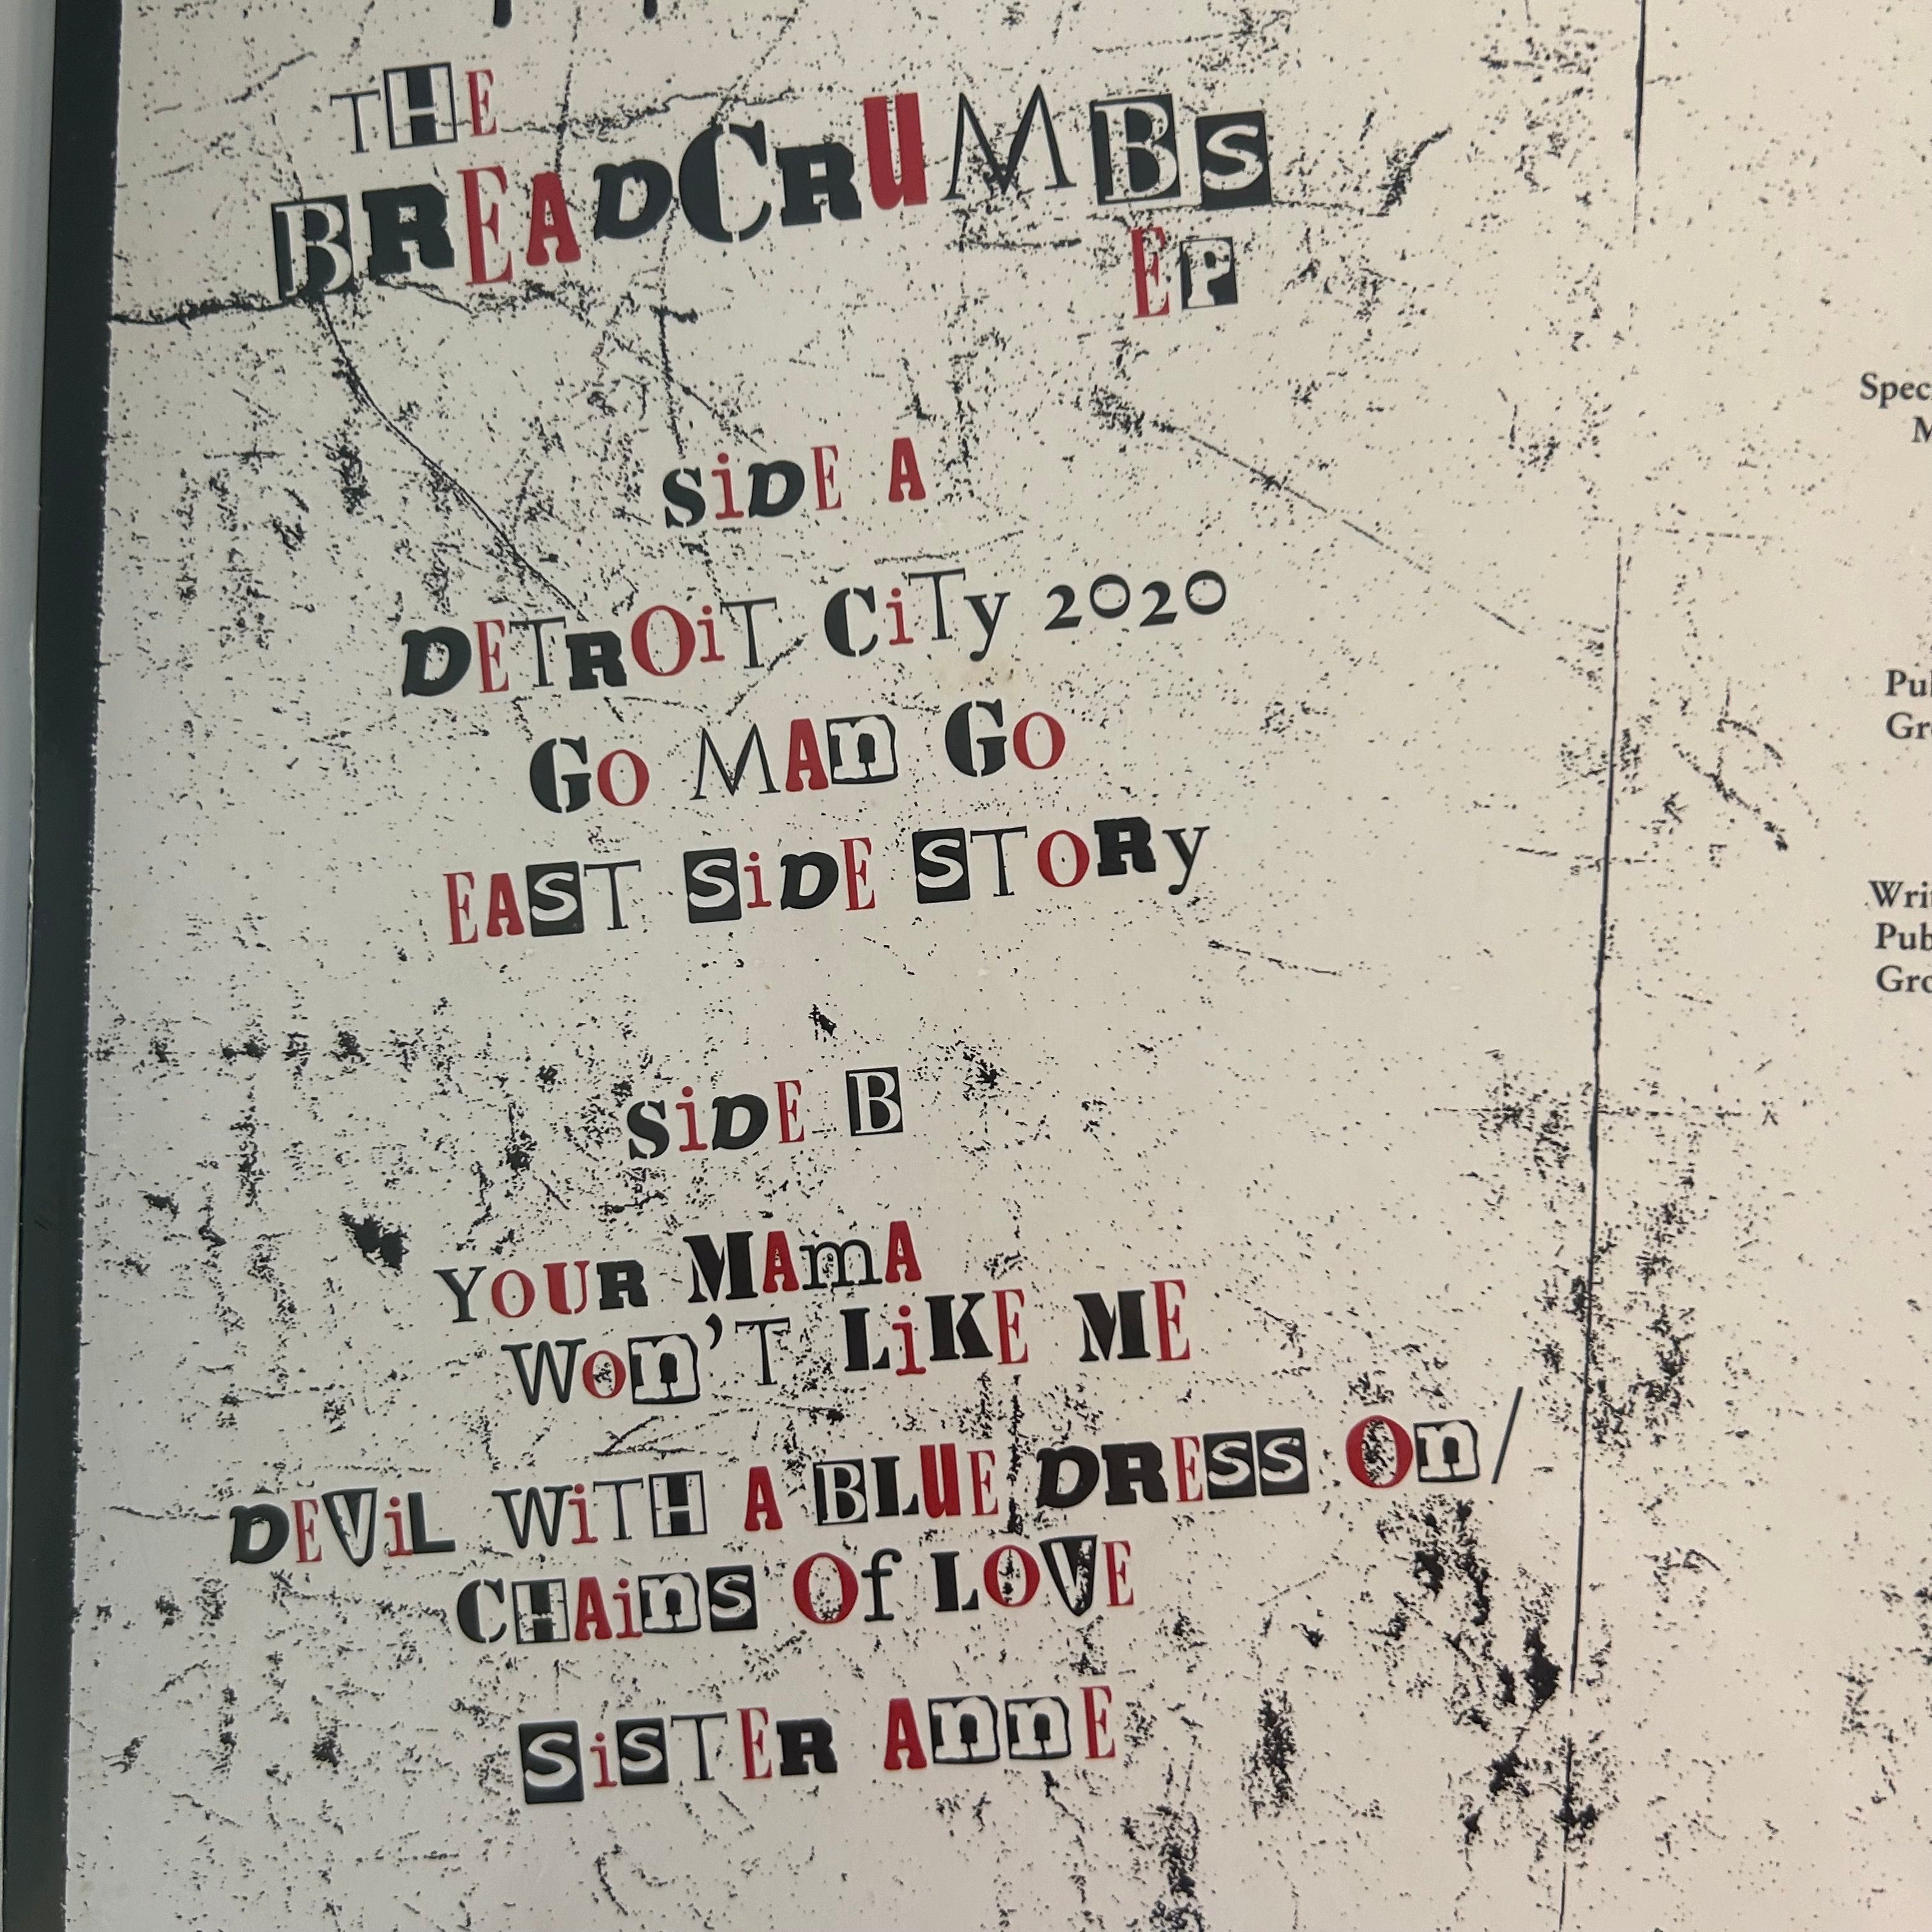 THE
BREADCRUMBS
EP
SiDE A
DETROiT CiTy 2020
GO MAn GO
EAST SiDE STORy
SiDE B
YOUR MAmA
WOn'T LiKE ME
DEViL WiTH A BLUE DRESS On/
CHAinS Of LOVE
SiSTER AnnE